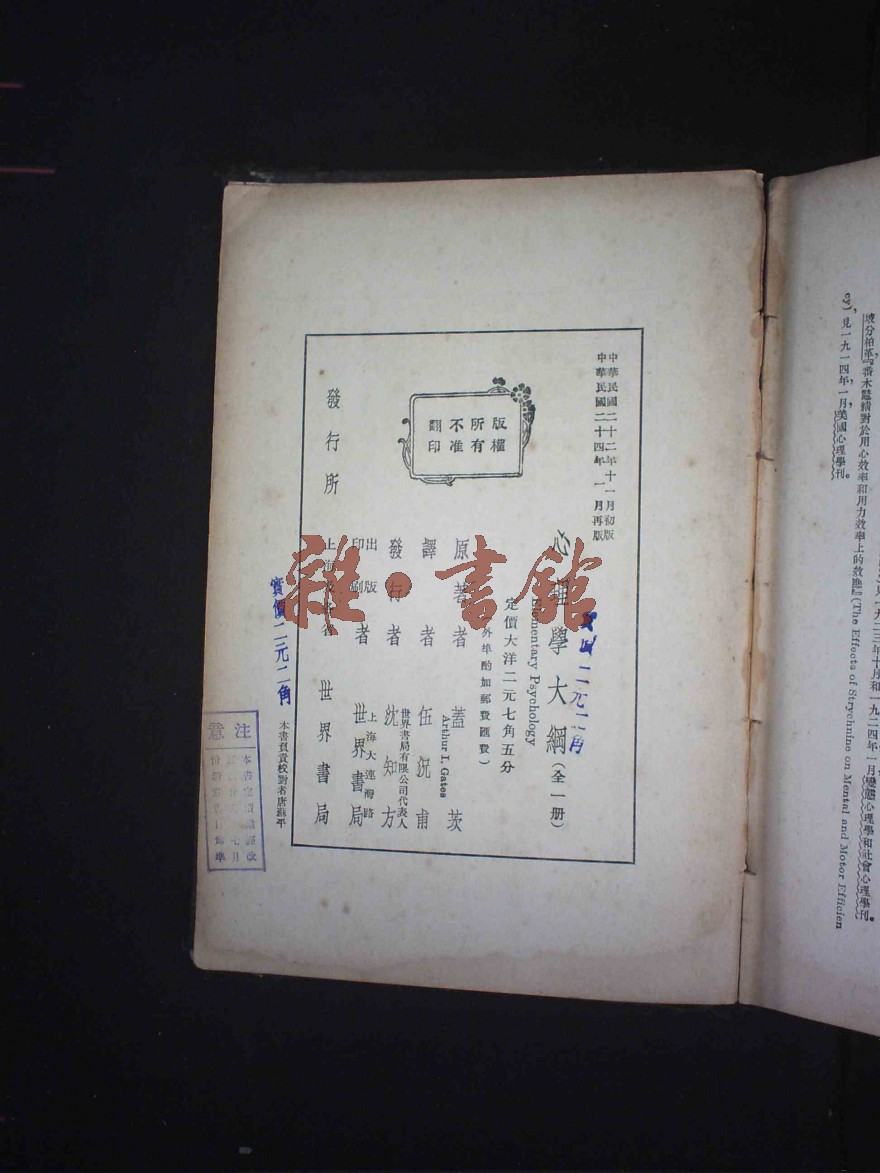 坡分柏革,『番木鼈精對於用心效率和用力效率上的效應』(The Effects of Strychnine on Mental and Motor Efficien
cy),見一九一四年一月美國心理學刊。
中華民國二十二年十一月初版
中華民國二十四年一月再版
心理學大綱(全一册)
Elementary Psychology
二元二角
定價大洋二元七角五分
外埠酌加郵費匯費)
版權
所有
不准
翻印
原著者 蓋茨
Arthur I. Gates
譯者 伍況甫
發行者 沈知方
世界書局有限公司代表人
出版
印刷者 世界書局
上海大連灣路
發行所 上海及各省 世界書局
實價二元二角
本書負責校對者唐
平
注意
雜·書館